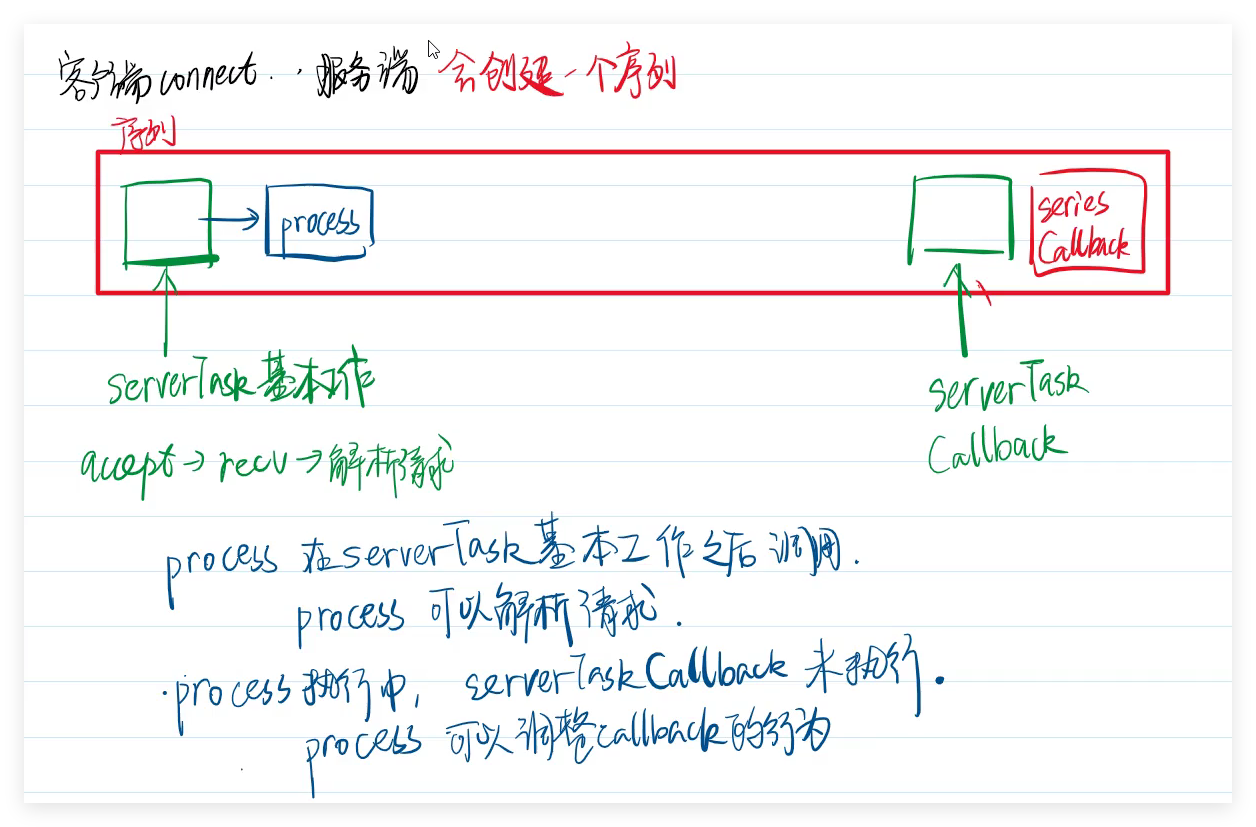 客户端connect.., 服务端 会创建一个序列
序列
process
series
Callback
serverTask基本工作
serverTask
Callback
accept→recv→解析请求
process 在serverTask基本工作之后 调用.
process 可以解析请求.
·process执行中, serverTaskCallback 未执行.
process 可以调整callback的行为